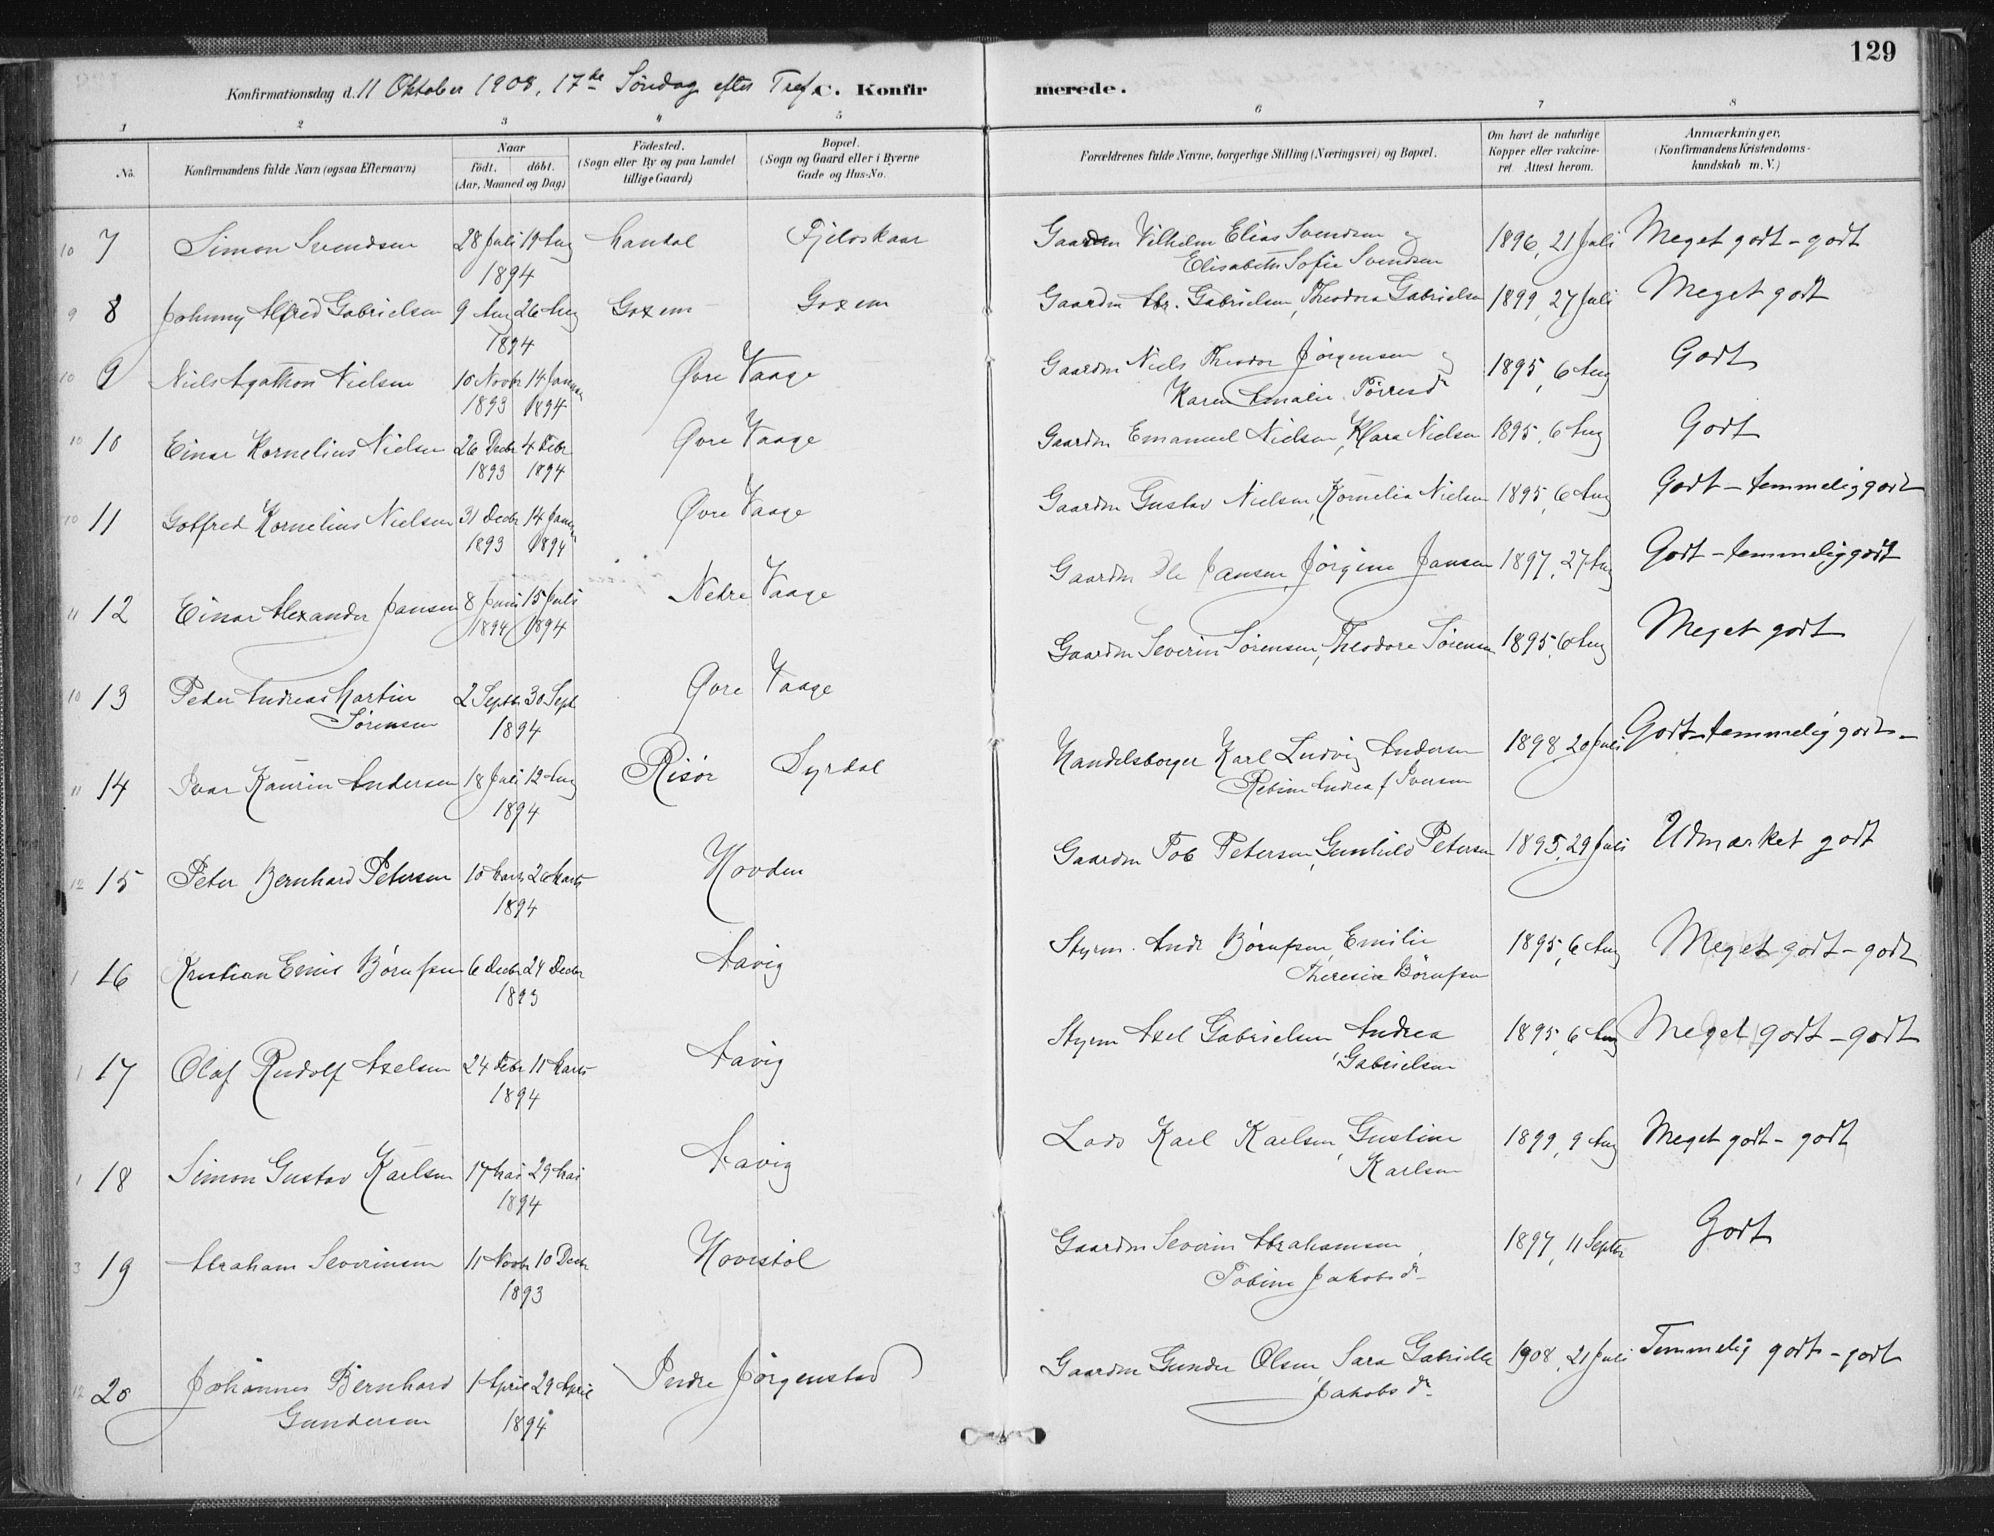 129
Konfirmationsdag d. 11 Oktober 1908, 17de Søndag efter Tref. C. Konfirmerede.
1 2 3 4 5 6 7 8
No. Konfirmandens fulde Navn (ogsaa Efternavn) Naar født. døbt. (Aar, Maaned og Dag) Fødested. (Sogn eller By og paa Landet tillige Gaard) Bopæl. (Sogn og Gaard eller i Byerne Gade og Hus-No. Forældrenes fulde Navne, borgerlige Stilling (Næringsvei) og Bopæl. Om havt de naturlige Kopper eller vakcineret. Attest herom. Anmærkninger, (Konfirmandens Kristendomskundskab m. V.)
10 7 Simon Svendsen 28 Juli 19 Aug Mandal Fjeldskaar Gaardm Vilhelm Elias Svendsen og 1896, 21 Juli Meget godt - godt
1894 Elisabeth Sofie Svendsen
9 8 Johnny Alfred Gabrielsen 9 Aug 26 Aug Goxem Goxem Gaardm Abr. Gabrielsen, Theodora Gabrielsen 1899, 27 Juli Meget godt
1894
10 9 Niels Agathon Nielsen 10 Novbr 14 Januar Øvre Vaage Gaardm Niels Theodor Jørgensen og 1895, 6 Aug Godt
1893 1894 Karen Amalie Tørresd
10 10 Einar Kornelius Nielsen 26 Decbr 4 Febr Øvre Vaage Gaardm Emanuel Nielsen, Klara Nielsen 1895, 6 Aug Godt
1893 1894
10 11 Gotfred Kornelius Nielsen 31 Decbr 14 Januar Øvre Vaage Gaardm Gustav Nielsen, Kornelia Nielsen 1895, 6 Aug Godt - temmelig godt
1893 1894
11 12 Einar Alexander Jansen 8 Juni 15 Juli Nedre Vaage Gaardm Ole Jansen, Jørgine Jansen 1897, 27 Aug Godt - temmelig godt
1894 1894
10 13 Peder Andreas Martin 2 Septbr 30 Sept Øvre Vaage Gaardm Severin Sørensen, Theodore Sørensen 1895, 6 Aug Meget godt
Sørensen 1894
11 14 Ivar Kaurin Andersen 18 Juli 12 Aug Risør Syrdal Handelsborger Karl Ludvig Andersen 1898 20 Juli Godt - temmelig godt -
1894 Rebine Andrea f Iversen
12 15 Peter Bernhard Petersen 10 Marts 20 Marts Hovden Gaardm Tob Petersen, Gunhild Petersen 1895, 29 Juli Udmærket godt
1894
1 16 Kristian Emil Børufsen 6 Decbr 24 Decbr Aavig Styrm. Andr Børufsen, Emilie 1895, 6 Aug Meget godt - godt
1893 Theresia Børufsen
1 17 Olaf Rudolf Axelsen 24 Febr 11 Marts Aavig Styrm Axel Gabrielsen, Andrea 1895, 6 Aug Meget godt - godt
1894 Gabrielsen
1 18 Simon Gustav Karlsen 17 Mai 29 Mai Aavig Lods Karl Karlsen, Gustine 1899, 9 Aug Meget godt - godt
1894 Karlsen
3 19 Abraham Severinsen 11 Novbr 10 Decbr Hovestøl Gaardm Severin Abrahamsen, 1897, 11 Septbr Godt
1893 Tobine Jakobsdr
12 20 Johannes Bernhard 1 April 29 April Indre Jørgenstad Gaardm Gunder Olsen, Sara Gabrielle 1908, 21 Juli Temmelig godt - godt
Gundersen 1894 Jakobsdr